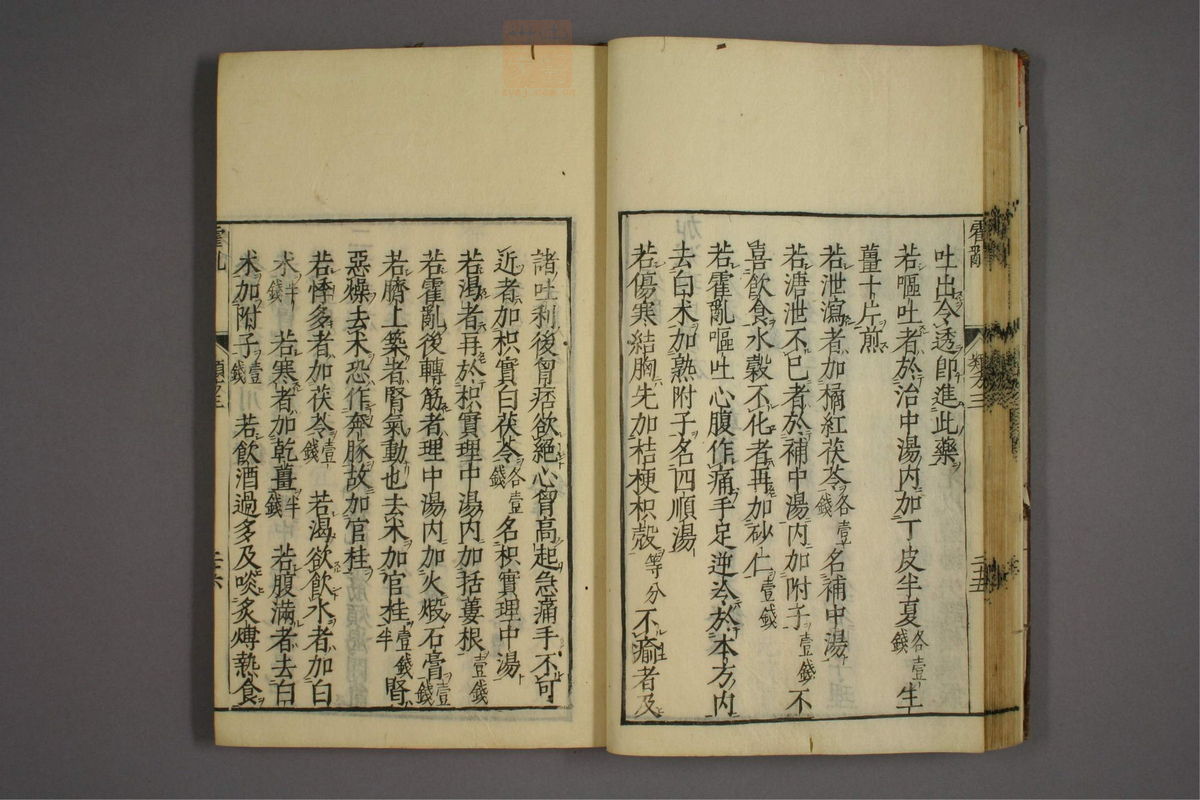 霍亂
類方三
二十五
吐出令透即進此藥
若嘔吐者於治中湯內加丁皮半夏各壹錢生
薑十片煎
若泄瀉者加橘紅茯苓各壹錢名補中湯
若溏泄不已者於補中湯內加附子壹錢不
喜飲食水穀不化者再加砂仁壹錢
若霍亂嘔吐心腹作痛手足逆冷於本方內
去白朮加熟附子名四順湯
若傷寒結胸先加桔梗枳殼等分不瘉者及
諸吐利後胷痞欲絕心胷高起急痛手不可
近者加枳實白茯苓各壹錢名枳實理中湯
若渴者再於枳實理中湯內加括蔞根壹錢
若霍亂後轉筋者理中湯內加火煅石膏壹錢
若臍上築者腎氣動也去朮加官桂壹錢半腎
惡燥去朮恐作奔豚故加官桂
若悸多者加茯苓壹錢若渴欲飲水者加白
朮半錢若寒者加乾薑半錢若腹滿者去白
朮加附子壹錢若飲酒過多及啖炙煿熱食
霍亂
類方三
二十六